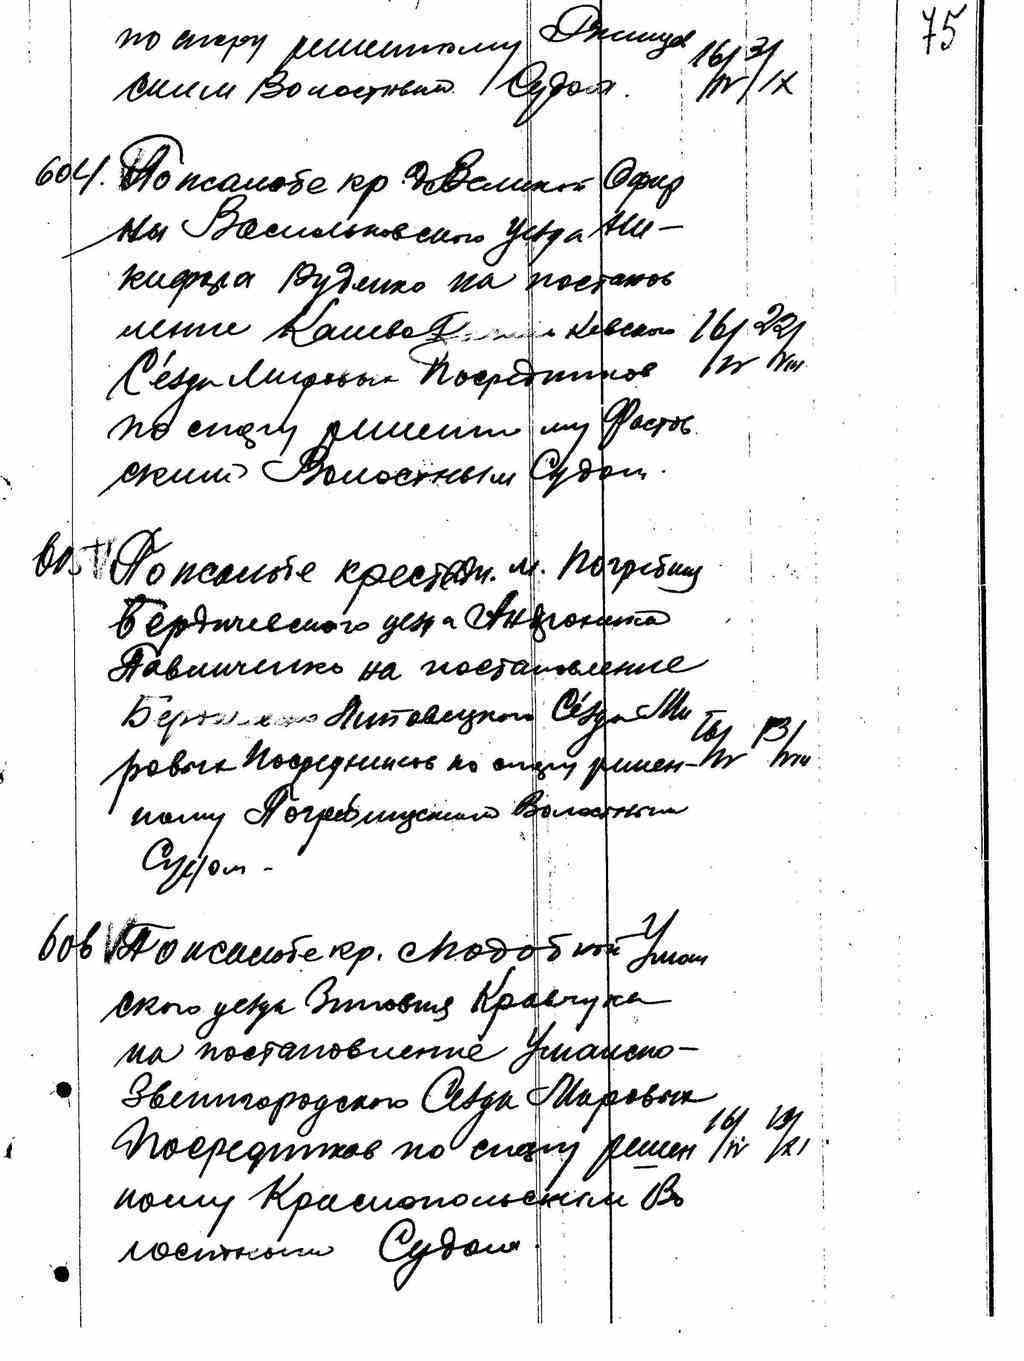 75
по спору решенному Ржищев
ским Волостным Судом. 16/IV 3/IX
604. По жалобе кр. д. Великой Офир
ны Васильковского уезда Ни-
кифора Руденко на постанов
ление Киево Васильковского 16/IV 22/VIII
Съезда Мировых Посредников
по спору решенному Фастов
ским Волостным Судом.
605 По жалобе крестьян. м. Погребищ
Бердичевского уезда Андроника
Павличенко на постановление
Бердичево Липовецкого Съезда Ми
ровых Посредников по спору решен- 16/IV 13/VIII
ному Погребищским Волостным
Судом -
606 По жалобе кр. с. Подобной Уман
ского уезда Зиновия Кравчука
на постановление Уманско-
Звенигородского Съезда Мировых
Посредников по спору решен 16/IV 19/XI
ному Краснопольским Во
лостным Судом.